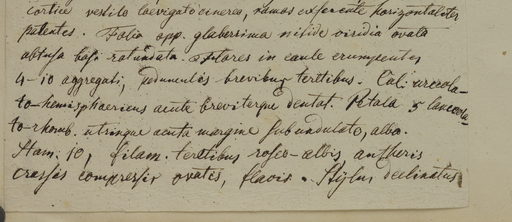 cortice vestito laevigato cinereo, ramos exserente horizontaliter
patentes. Folia opp. glaberrima nitide viridia ovata
obtusa basi rotundata. Flores in caule erumpentes
4-10 aggregati, pedunculis brevibus teretibus. Cal: urceola-
to-hemisphaericus acute breviterque dentat. Petala 5 lanceola-
to-rhomb. utrinque acuta margine subundulato, alba.
Stam: 10, filam. teretibus roseo-albis, antheris
crassis compressis ovatis, flavis. Stylus declinatus